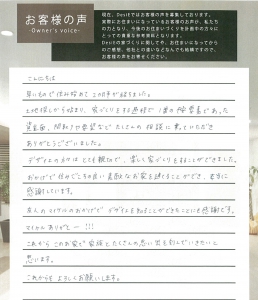 お客様の声
-Owner's voice-
現在、Desitではお客様の声を募集しております。
実際にお住まいになっているお客様の声が、私たち
の力となり、今後のお住まいづくりを計画中の方々に
とっての貴重な参考資料となります。
Desitの家づくりに関してや、お住まいになってから
のご感想、他社との違いなどなんでも結構ですので、
お客様の声をお寄せください。
こんにちは
早いもので住み始めて
土地探しから始まり、家づくりをする過程で1番の
資金面、間取りや要望など たくさんの相談に乗っていただき
ありがとうございました。
デザイナーの方は とても親切で、楽しく家づくりをすることができました。
おかげで 住みごこちの良い素敵なお家を建てることができ、本当に
感謝しています。
友人の おかげで デザイナーを知ることができたことにも感謝です。
ありがとー!!!
これから このお家で家族とたくさんの思い出を刻んでいきたいと
思います。
これからも よろしくお願いします。